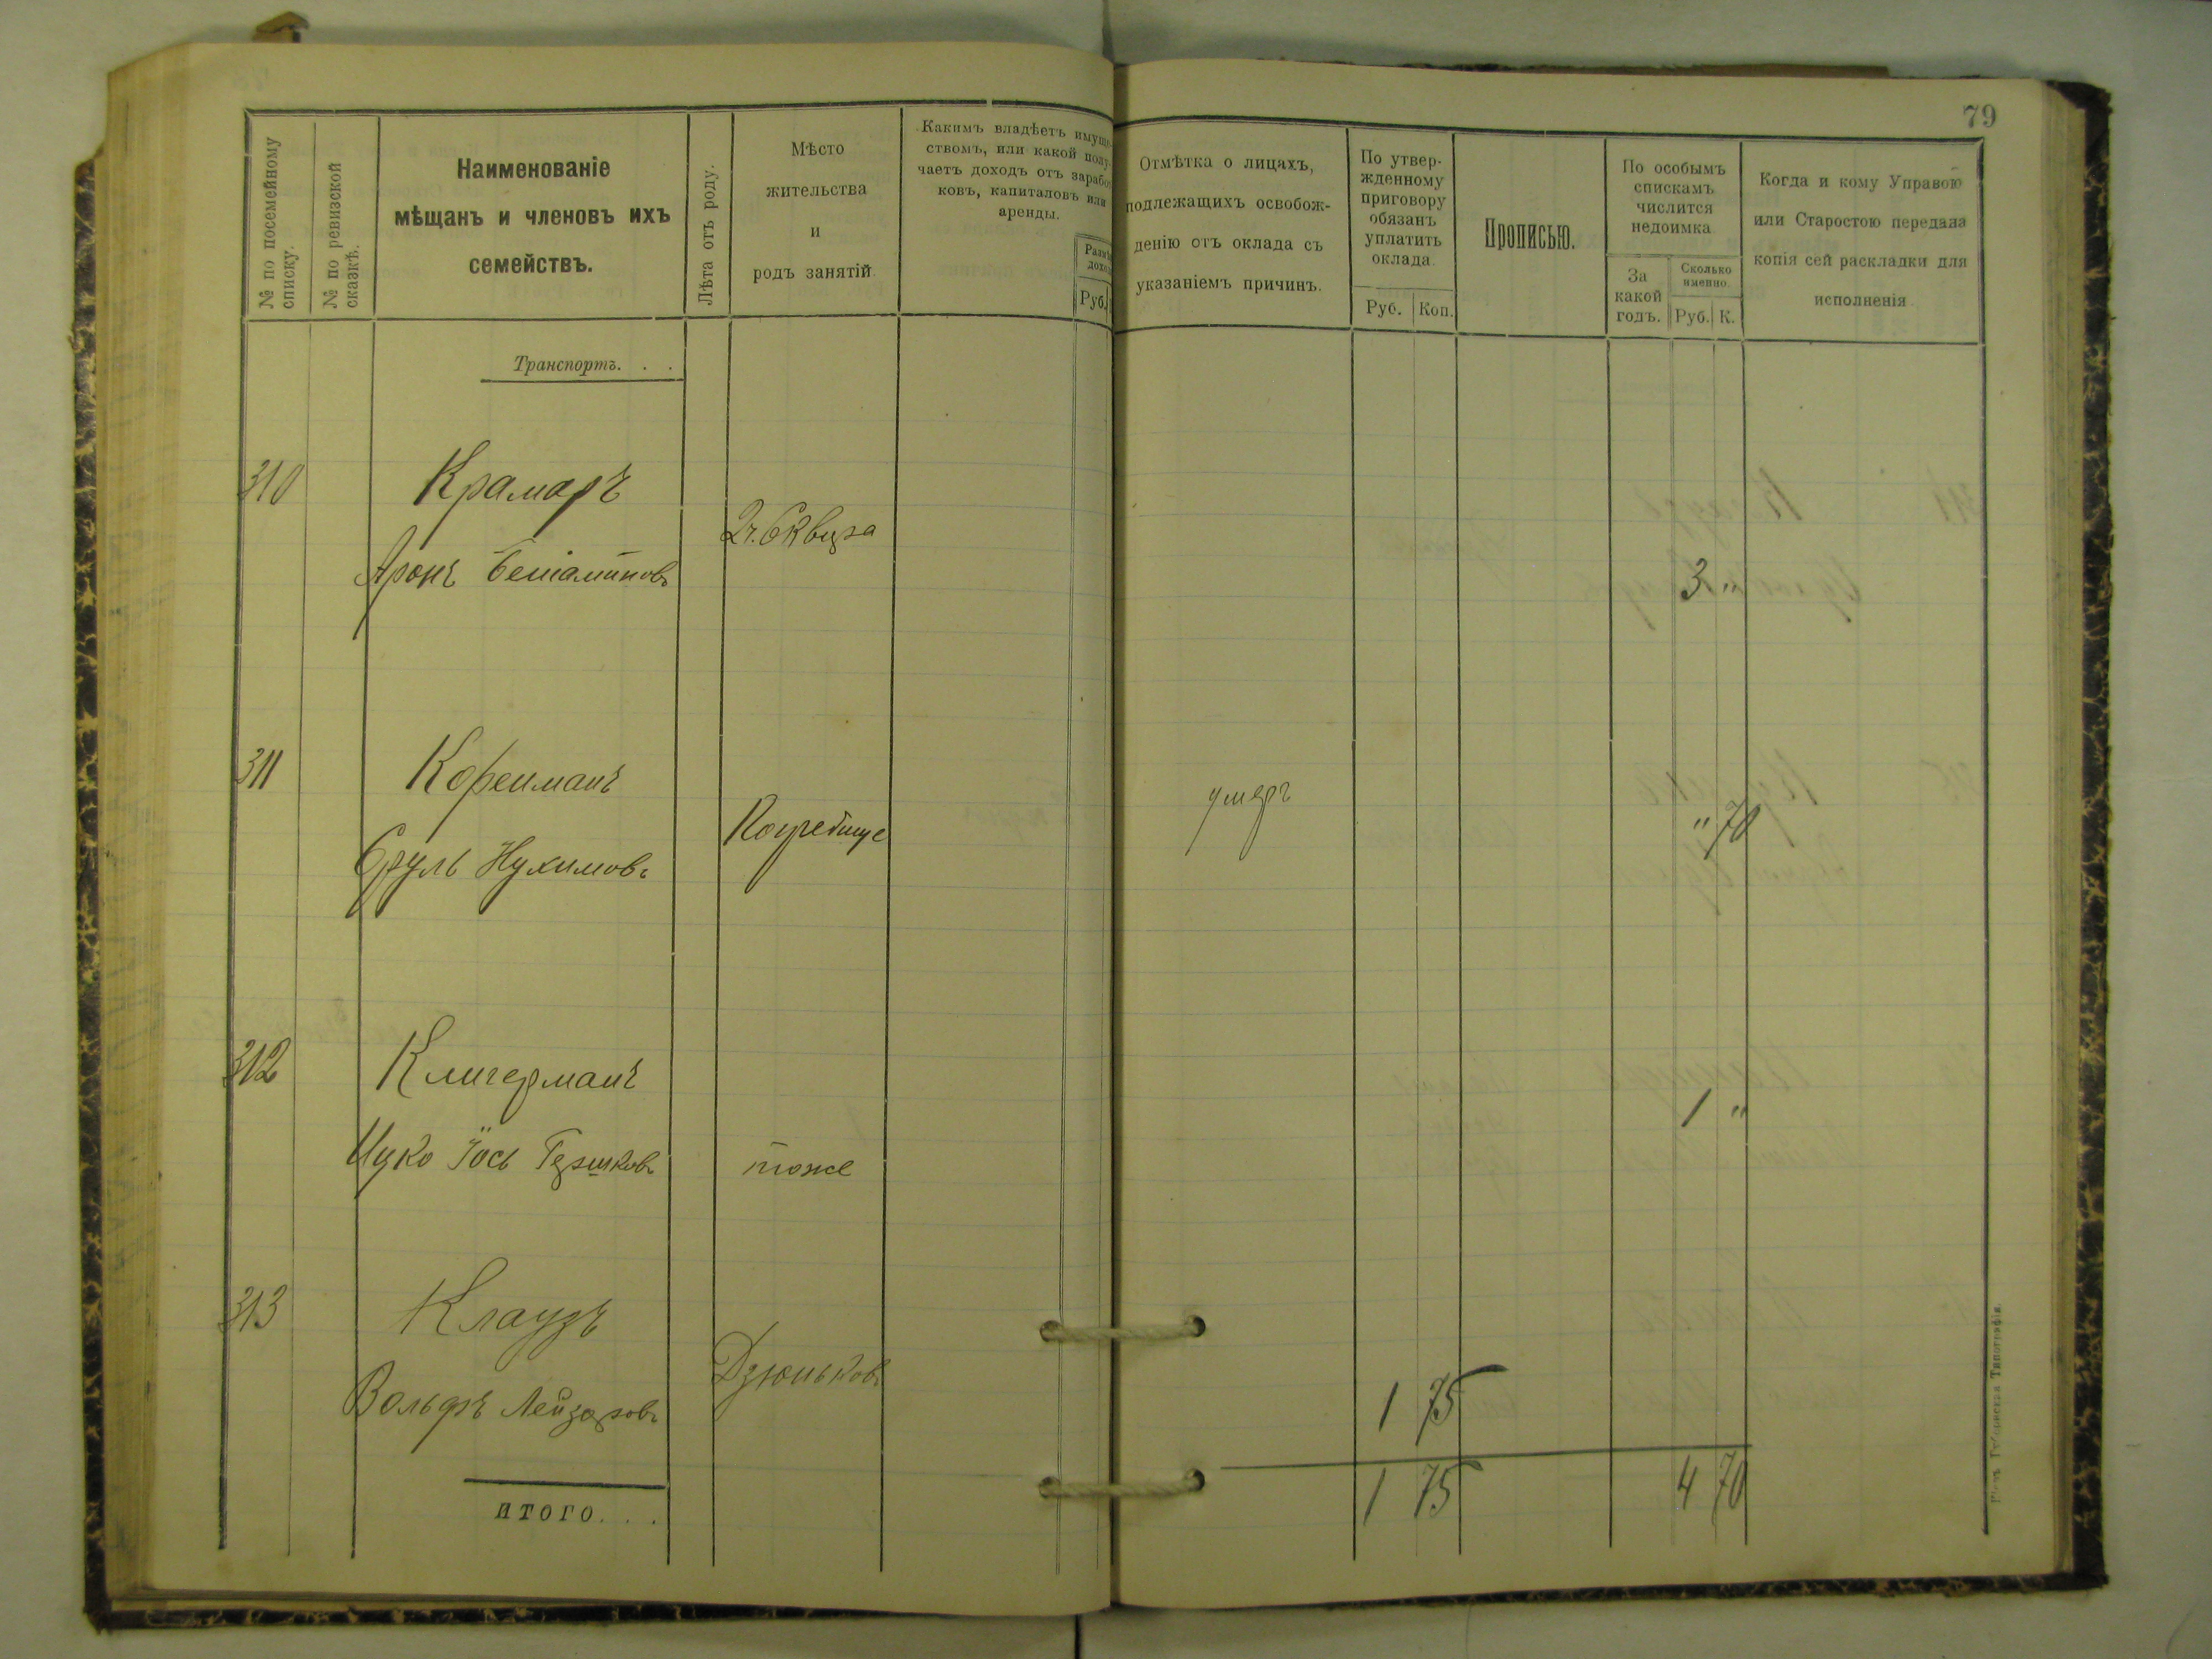 79
№ по посемейному
списку.
№ по ревизской
сказкѣ.
Наименованіе
мѣщанъ и членовъ ихъ
семействъ.
Лѣта отъ роду.
Мѣсто
жительства
и
родъ занятій.
Какимъ владѣетъ имуще-
ствомъ, или какой полу-
чаетъ доходъ отъ заработ
ковъ, капиталовъ или
аренды.
Руб.
Отмѣтка о лицахъ,
подлежащихъ освобож-
денію отъ оклада съ
указаніемъ причинъ.
По утвер-
жденному
приговору
обязанъ
уплатить
оклада.
Руб. Коп.
Прописью.
По особымъ
спискамъ
числится
недоимка
За
какой
годъ.
Сколько
именно.
Руб. К.
Когда и кому Управою
или Старостою передана
копія сей раскладки для
исполненія.
Транспортъ. . .
310 Крамаръ
Аронъ Беніаминовъ
3 "
311 Корейманъ
Сруль Нухимовъ
Погребище
умеръ
" 70
312 Клигерманъ
Ицко Іось Гершковъ
тоже
1 "
313 Клаузъ
Вольфъ Лейзоровъ
Дзюньковъ
1 75
ИТОГО. . .
1 75
4 70
Губернская Типографія.